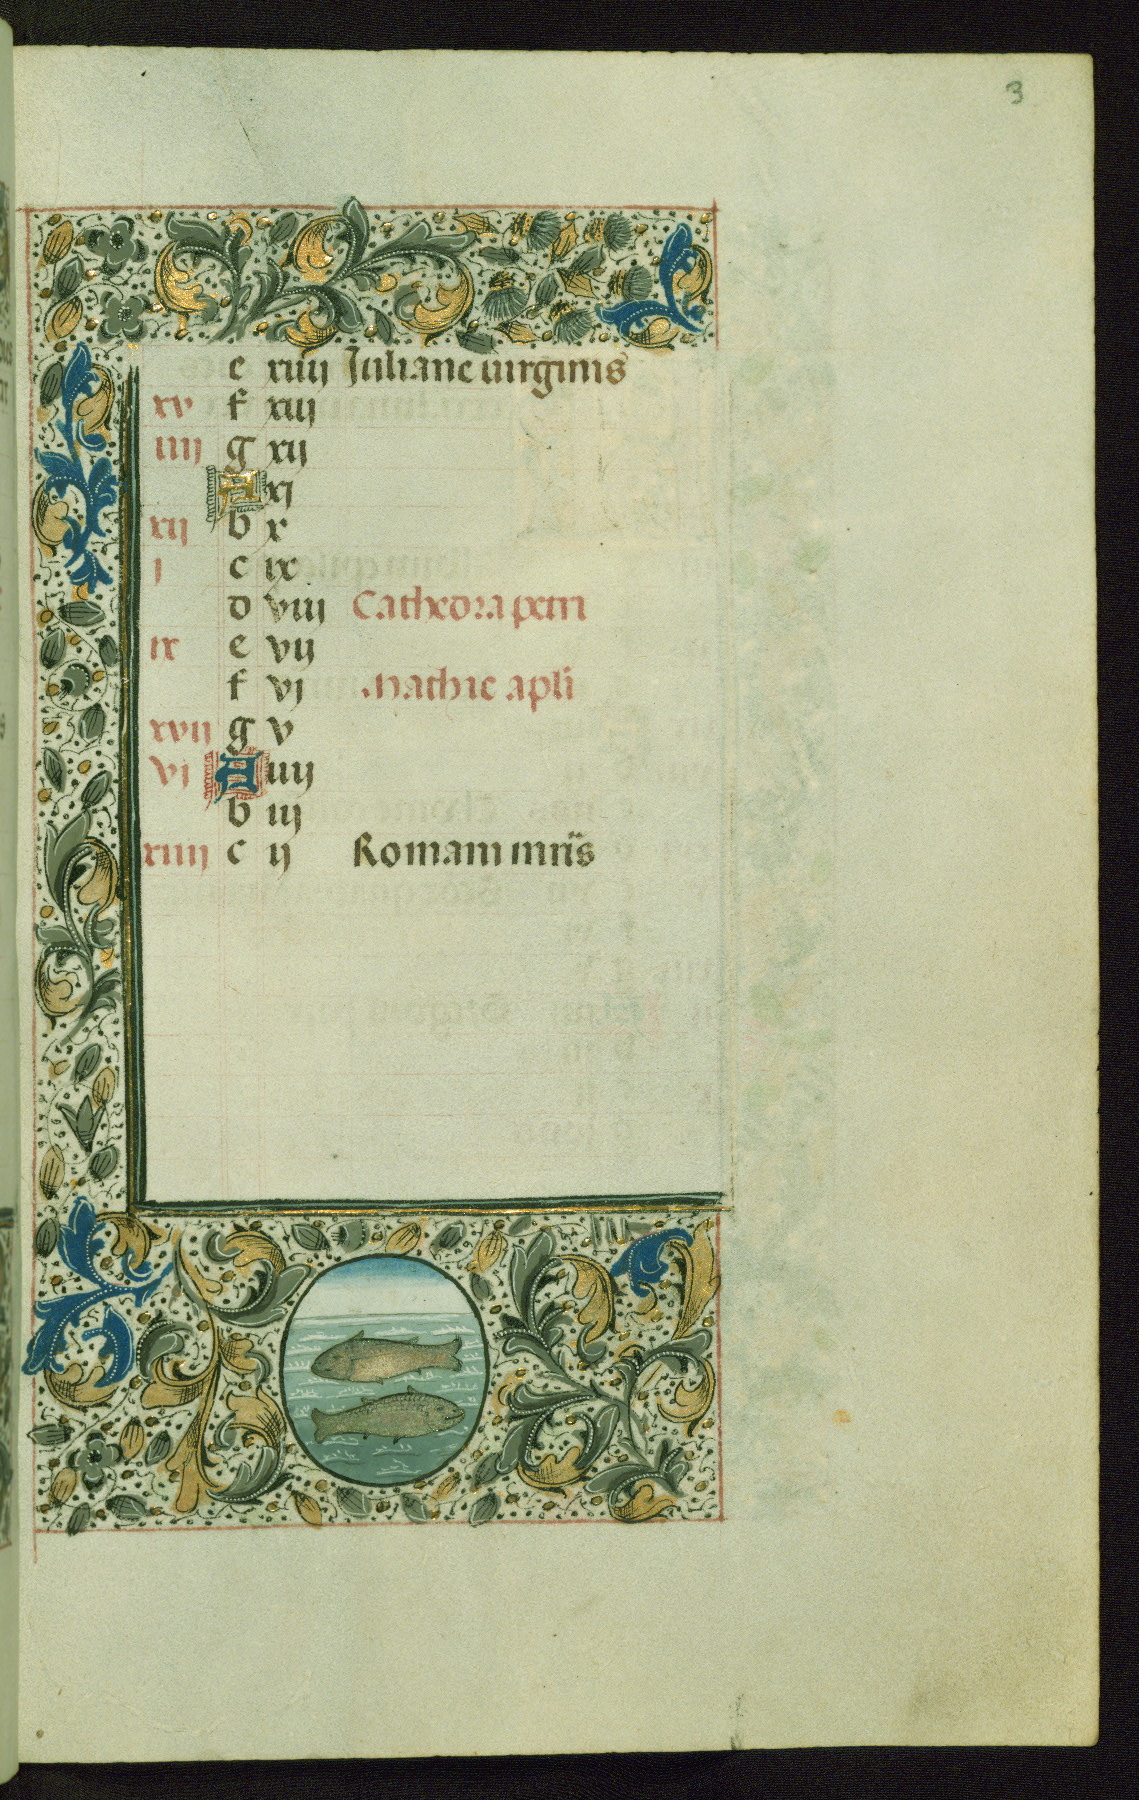 3
e xiiii Juliane uirginis
xv f xiii
iiii g xii
A xi
xii b x
i c ix
d viii Cathedra petri
ix e vii
f vi Mathie apli
xvii g v
vi A iiii
b iii
xiiii c ii Romani mris